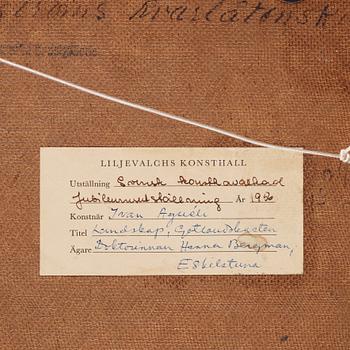 kvarlåtensk
LILJEVALCHS KONSTHALL
Utställning Svensk Konsthandel
Jubileumsutställning År
Konstnär Ivan Aguéli
Titel Landskap, Gotlandskusten
Ägare Doktorinnan Hanna Bergman,
Eskilstuna